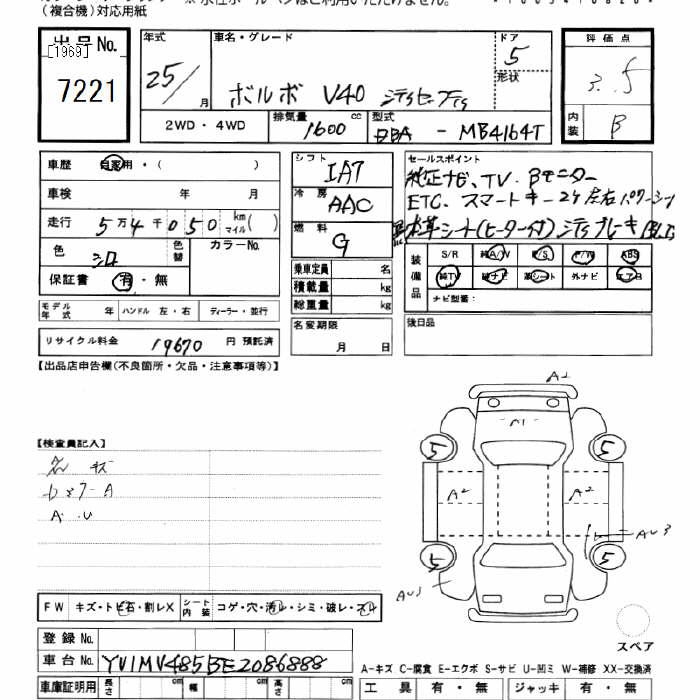 (複合機)対応用紙
出品No.
[1969]
7221
年式
25/ 月
車名・グレード
ボルボ V40
ドア
5
形状
評価点
3.5
内装
B
2WD・4WD
排気量
1600 cc
型式
DBA - MB4164T
車歴 自家用・( )
車検 年 月
走行 5万4千050 km マイル( )
色 シロ
色替
カラーNo.
保証書 有・無
モデル年式 年 ハンドル 左・右 ディーラー・並行
リサイクル料金 19670 円 預託済
シフト
IA7
冷房
AAC
燃料
G
乗車定員 名
積載量 kg
総重量 kg
名変期限
月 日
セールスポイント
純正ナビ、TV、Bモニター
ETC、スマートキー2ケ左右パワーシート
本革シート(ヒーター付)
装備品
S/R 純A/W P/S P/W ABS
純TV 純ナビ 革シート 外ナビ エアB
ナビ型番:
後日品
【出品店申告欄(不良箇所・欠品・注意事項等)】
【検査員記入】
キズ
A
A U
A2
A1
5 5
A2 A2
AU3
5 5
AU3
スペア
FW キズ・トビ石・割レX シート内装 コゲ・穴・汚レ・シミ・破レ・スレ
登録No.
車台No. YV1MV485BE2086888
車庫証明用 長さ cm 幅 cm 高さ cm
A-キズ C-腐食 E-エクボ S-サビ U-凹ミ W-補修 XX-交換済
工具 有・無 ジャッキ 有・無